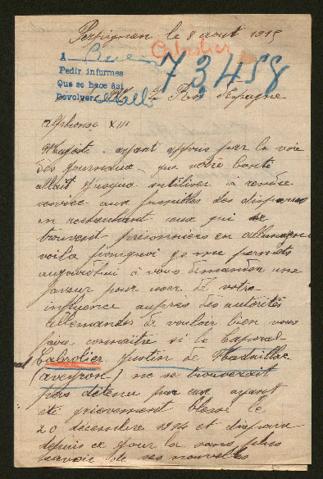 Perpignan le 8 aout 1915
Cabrolier
A
Pedir informes
Que se hace asi
Devolver
73458
Le Roi d'Espagne
Alphonse XIII
Majesté, ayant appris par la voie
des journaux que votre bonté
allait jusqua rendre
service aux familles des disparus
en recherchant ceux qui se
trouvent prisonniers en allemagne
voila pourquoi je me permets
aujourd'hui à vous demander une
faveur pour user de votre
influence auprès des autorités
allemandes de vouloir bien nous
faire connaitre si le Caporal
Cabrolier Justin de
(aveyron) ne se trouverait
pas détenu par eux ayant
été grievement blessé le
20 décembre 1914 et disparu
depuis ce jour la sans plus
savoir de ses nouvelles